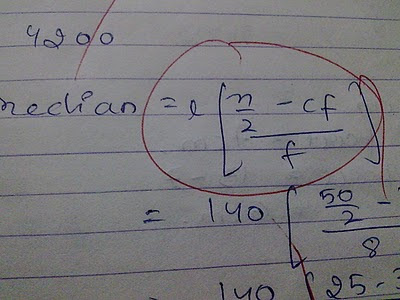 4200
median = l [ n/2 - cf / f ]
= 140 [ 50/2 - / 8
= 140 [ 25 - 3